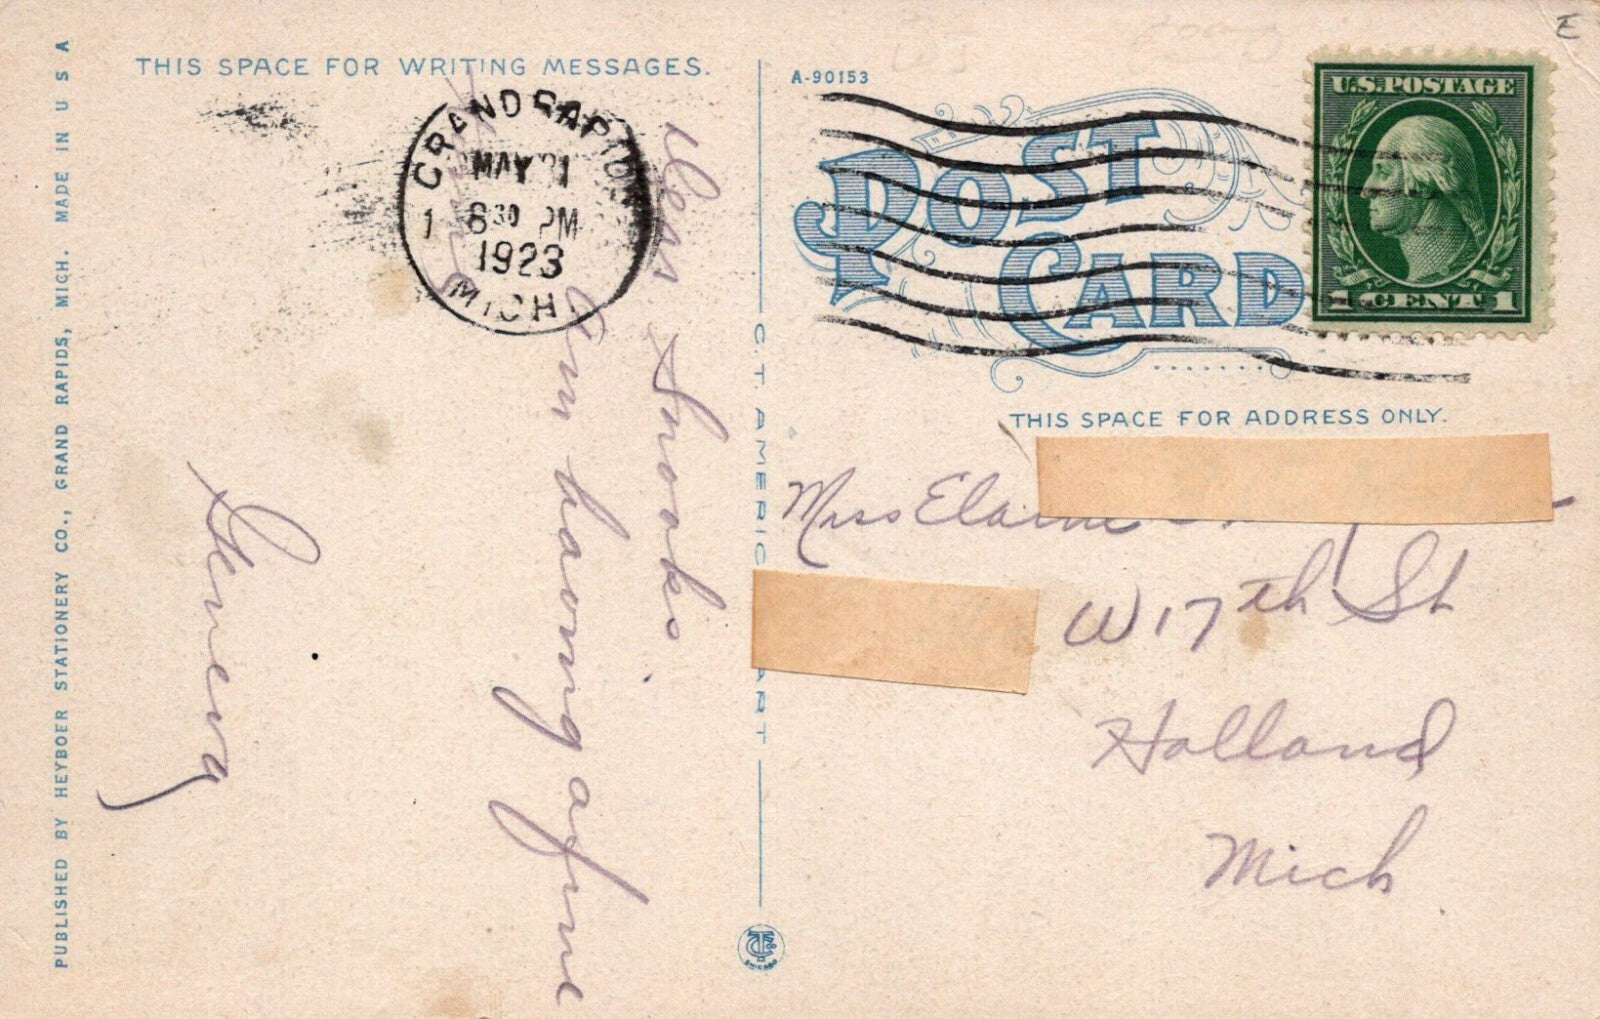 THIS SPACE FOR WRITING MESSAGES.
A-90153
POST
CARD
U.S. POSTAGE
1 CENT 1
GRAND RAPIDS
MAY 21
1 830 PM
1923
MICH
THIS SPACE FOR ADDRESS ONLY.
Dear Snooks
Am having a fine
time
Geneva
Miss Elaine
W 17th St
Holland
Mich
C. T. AMERICAN ART
CHICAGO
PUBLISHED BY HEYBOER STATIONERY CO., GRAND RAPIDS, MICH. MADE IN U S A
E